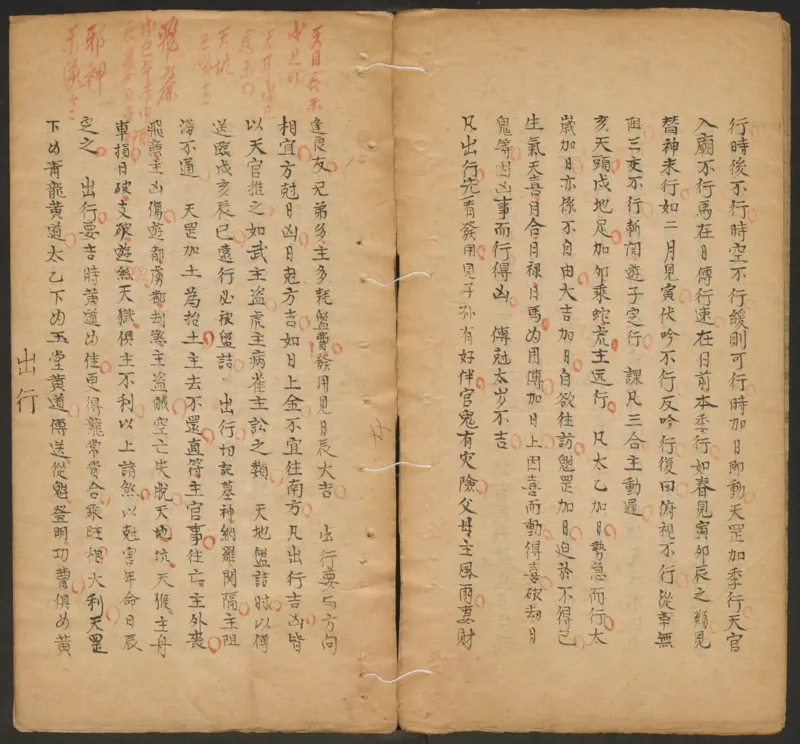 行時後不行時空不行緩則可行時加日即動天罡加季行天官
入廟不行馬在日傳行速在日前本季行如春見寅卯辰之類見
替神未行如二月見寅伏吟不行反吟行復回俯視不行從章無
阻三交不行斬関遊子定行 課凡三合主動遲
亥天頭戌地足加卯乘蛇虎主远行 凡太乙加日勢急而行太
嵗加日亦係不自由大吉加日自欲往訪魁罡加日迫於不得已
生氣天喜月合日禄日馬為用傳加日上因喜而動得喜破刼日
鬼等因凶事而行得凶 傳尅太岁不吉
凡出行完看發用見子孙有好伴官鬼有灾險父母主風雨妻財
逢良友兄弟多主多耗盤費發用見日辰大吉 出行要占方向
相宜方尅日凶日尅方吉如日上金不宜往南方凡出行吉凶皆
以天官推之如武主盗虎主病雀主訟之類 天地盤詰时以傳
送臨戌亥辰巳遠行必被盤詰 出行切記墓神網羅関隔主阻
滞不通 天罡加土為招土主去不還直符主官事往亡主外丧
飛廉主凶傷遊都虜都刼煞主盗賊空亡失脱天地坑天猴主舟
車損日破支破遊煞天獄俱主不利以上諸煞以尅害年命日辰
定之 出行要吉時黄道为佳更得龍常貴合乘旺相大利天罡
下为青龍黄道太乙下为玉堂黄道傳送從魁登明功曹俱为黄
出行
天目辰未
天坑
飛廉
邪神